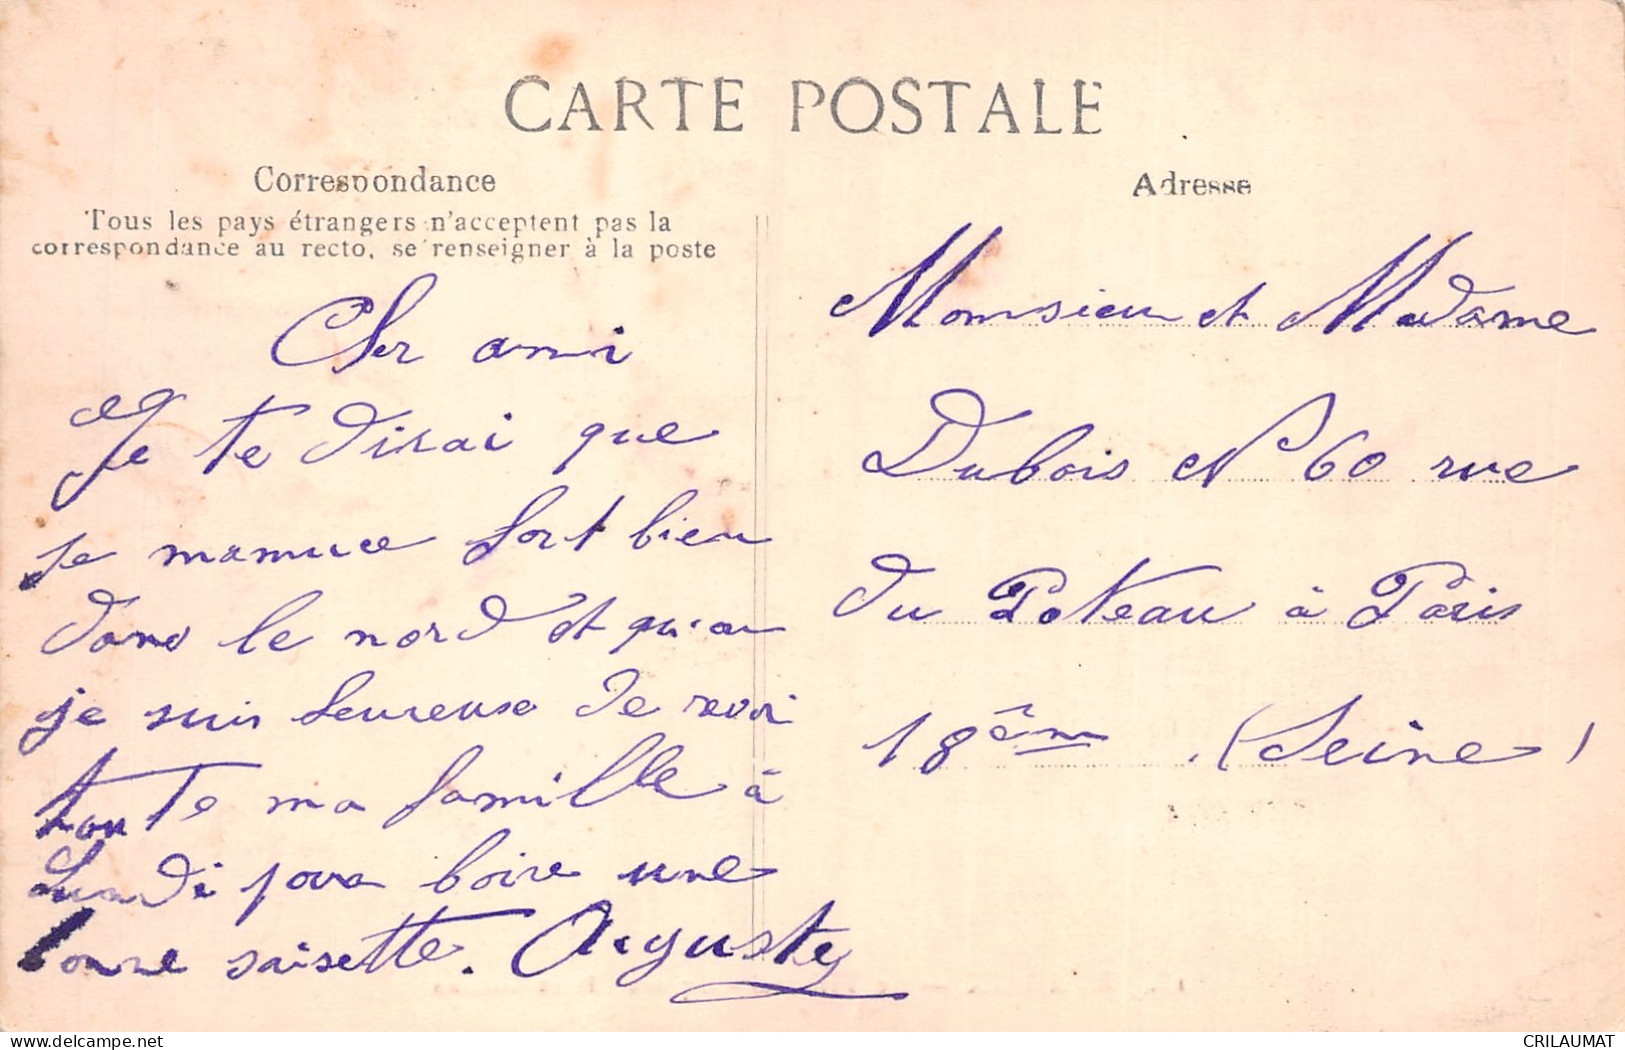 CARTE POSTALE
Correspondance
Tous les pays étrangers n'acceptent pas la
correspondance au recto, se renseigner à la poste
Cher ami
Je te dirai que
je mamuce fort bien
dans le nord et qu'an
je suis heureuse de revoi
toute ma famille à
Lundi pour boire une
bonne saisette. Auguste
Adresse
Monsieu et Madame
Dubois N° 60 rue
du Poteau à Paris
18ème (Seine)
CRILAUMAT